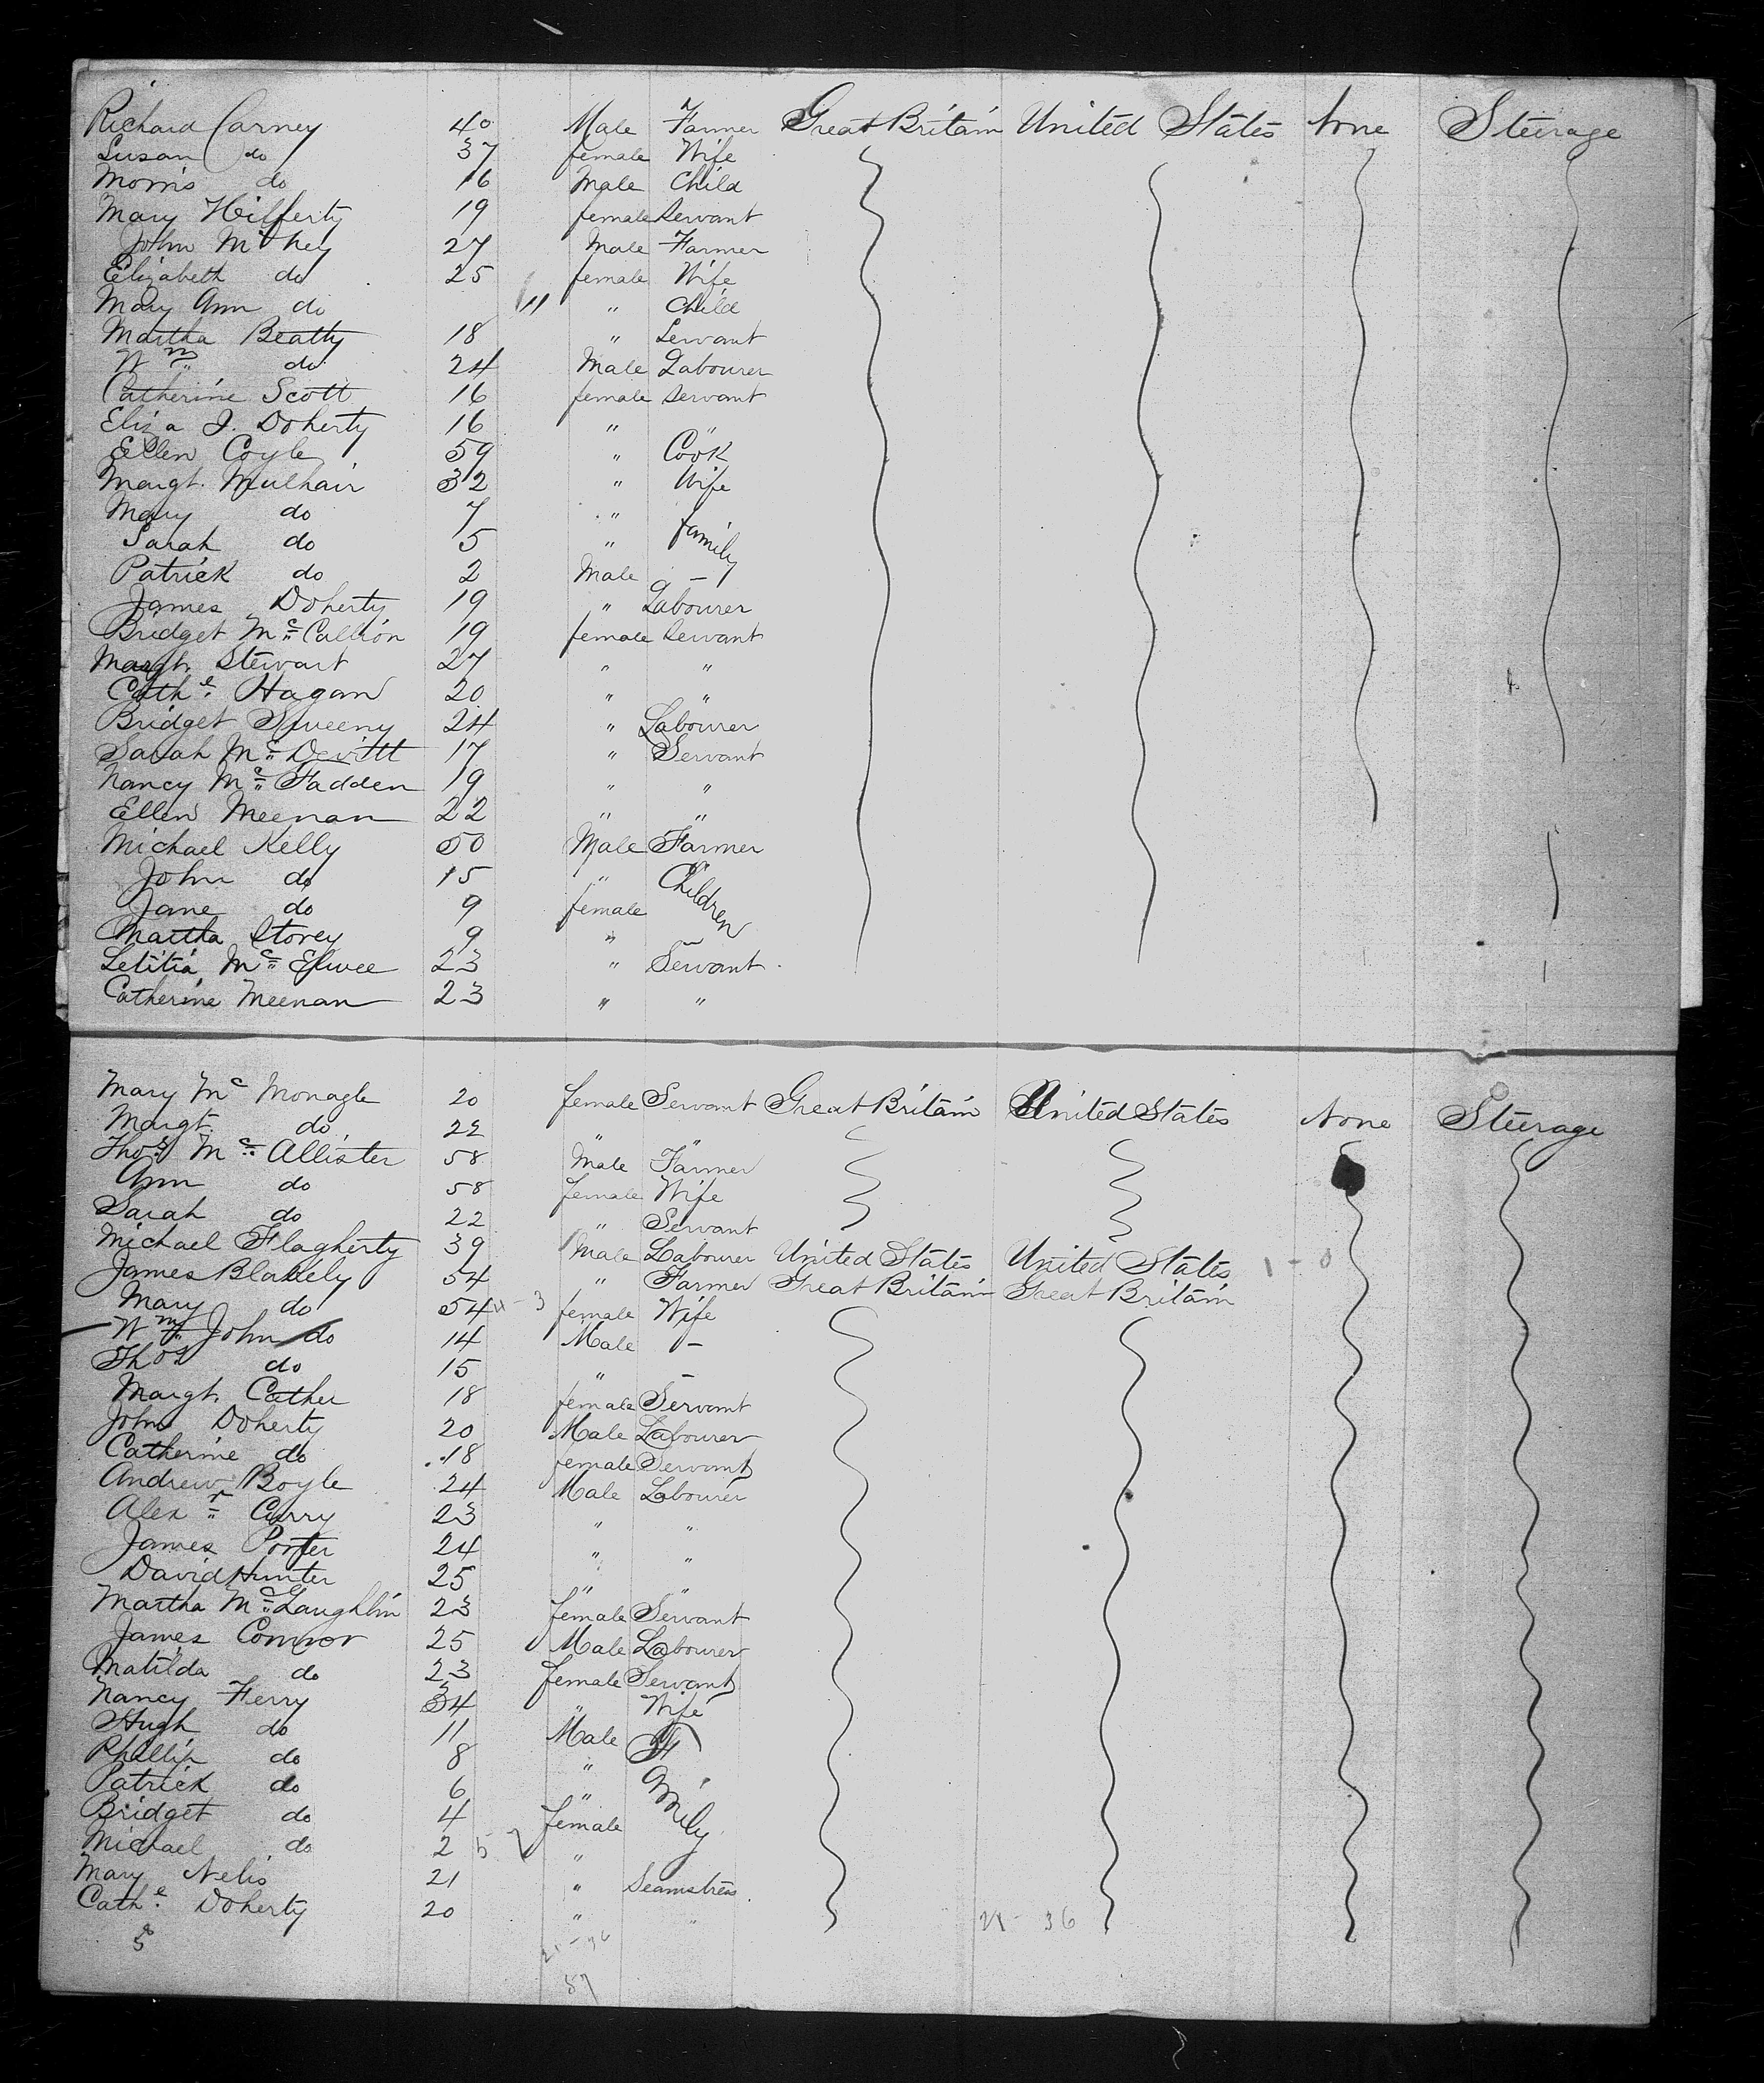 Richard Carney 40 Male Farmer Great Britain United States None Steerage
Susan do 37 female Wife
Morris do 16 Male Child
Mary Hefferty 19 female Servant
John 27 Male Farmer
Elizabeth do 25 female Wife
Mary Ann do 11 " Child
Martha Beatty 18 " Servant
Wm do 24 Male Labourer
Catherine Scott 16 female Servant
Eliza J. Doherty 16 " "
Ellen Coyle 59 " Cook
Margt. Mulhair 32 " Wife
Mary do 7 "
Sarah do 5 " family
Patrick do 2 Male -
James Doherty 19 " Labourer
Bridget Mc Callion 19 female Servant
Margt. Stewart 27 " "
Cathe. Hagan 20 " "
Bridget Sweeny 24 " Labourer
Sarah Mc Devitt 17 " Servant
Nancy Mc Fadden 19 " "
Ellen Meenan 22 " "
Michael Kelly 50 Male Farmer
John do 15 " Children
Jane do 9 female
Martha Storey 9 " -
Letitia Mc Elwee 23 " Servant
Catherine Meenan 23 " "
Mary Mc Monagle 20 female Servant Great Britain United States None Steerage
Margt. do 22 " "
Thos. Mc Allister 58 Male Farmer
Ann do 58 female Wife
Sarah do 22 " Servant
Michael Flagherty 39 Male Labourer United States United States 1 - 0
James Blakely 54 " Farmer Great Britain Great Britain
Mary do 54 female Wife
Wm. John do 14 Male -
Thos do 15 " -
Margt. Cather 18 female Servant
John Doherty 20 Male Labourer
Catherine do 18 female Servant
Andrew Boyle 24 Male Labourer
Alexr. Curry 23 " "
James Porter 24 " "
David Hunter 25 " "
Martha Mc Laughlin 23 female Servant
James Connor 25 Male Labourer
Matilda do 23 female Servant
Nancy Ferry 34 " Wife
Hugh do 11 Male Fa
Phillip do 8 "
Patrick do 6 " mily
Bridget do 4 female
Michael do 2 "
Mary Nelis 21 " Seamstress
Cathe. Doherty 20 " "
21 - 36
57